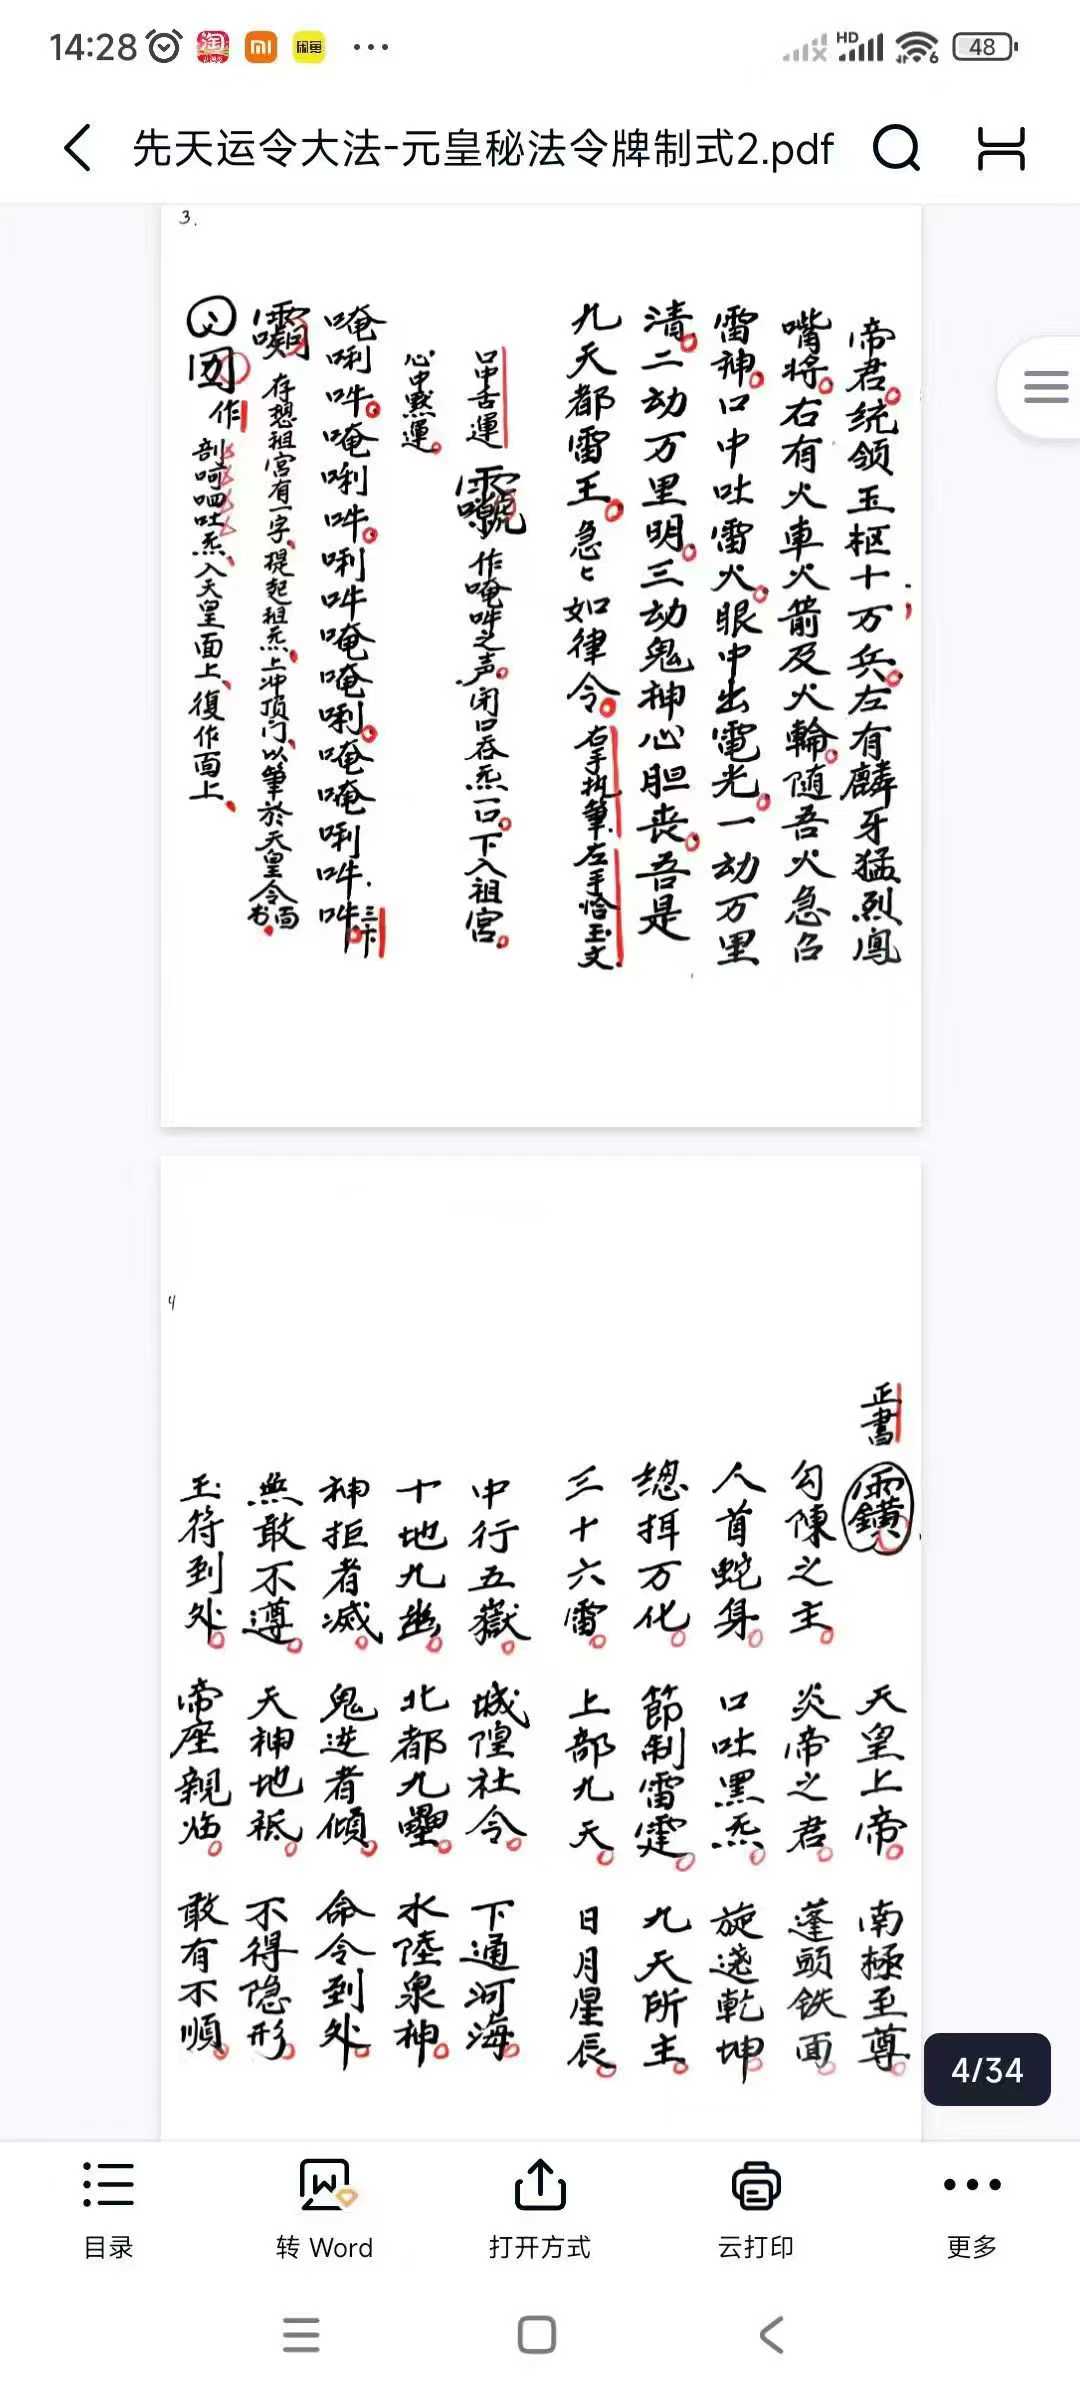 14:28
HD
6
48
先天运令大法-元皇秘法令牌制式2.pdf
3.
帝君统领玉枢十万兵左有麟牙猛烈鳳
嘴将右有火車火箭及火輪随吾火急召
雷神口中吐雷火眼中出電光一动万里
清二动万里明三动鬼神心胆丧吾是
九天都雷王急〻如律令右手执筆左手恰玉文
口中舌運
作唵吽之声闭口吞炁一口下入祖宫
心中默運
唵唎吽唵唎吽唎吽唵唵唎唵唵唎吽吽三下
存想祖宫有一字提起祖炁上冲顶门以筆於天皇令面书
作剖呵呬吐炁入天皇面上復作面上
4
正書
天皇上帝南極至尊
勾陳之主炎帝之君蓬頭铁面
人首蛇身口吐黑炁旋遶乾坤
總揖万化節制雷霆九天所主
三十六雷上部九天日月星辰
中行五嶽城隍社令下通河海
十地九幽北都九壘水陸泉神
神拒者滅鬼逆者傾命令到处
無敢不遵天神地祇不得隐形
玉符到处帝座親临敢有不順
4/34
目录
转 Word
打开方式
云打印
更多